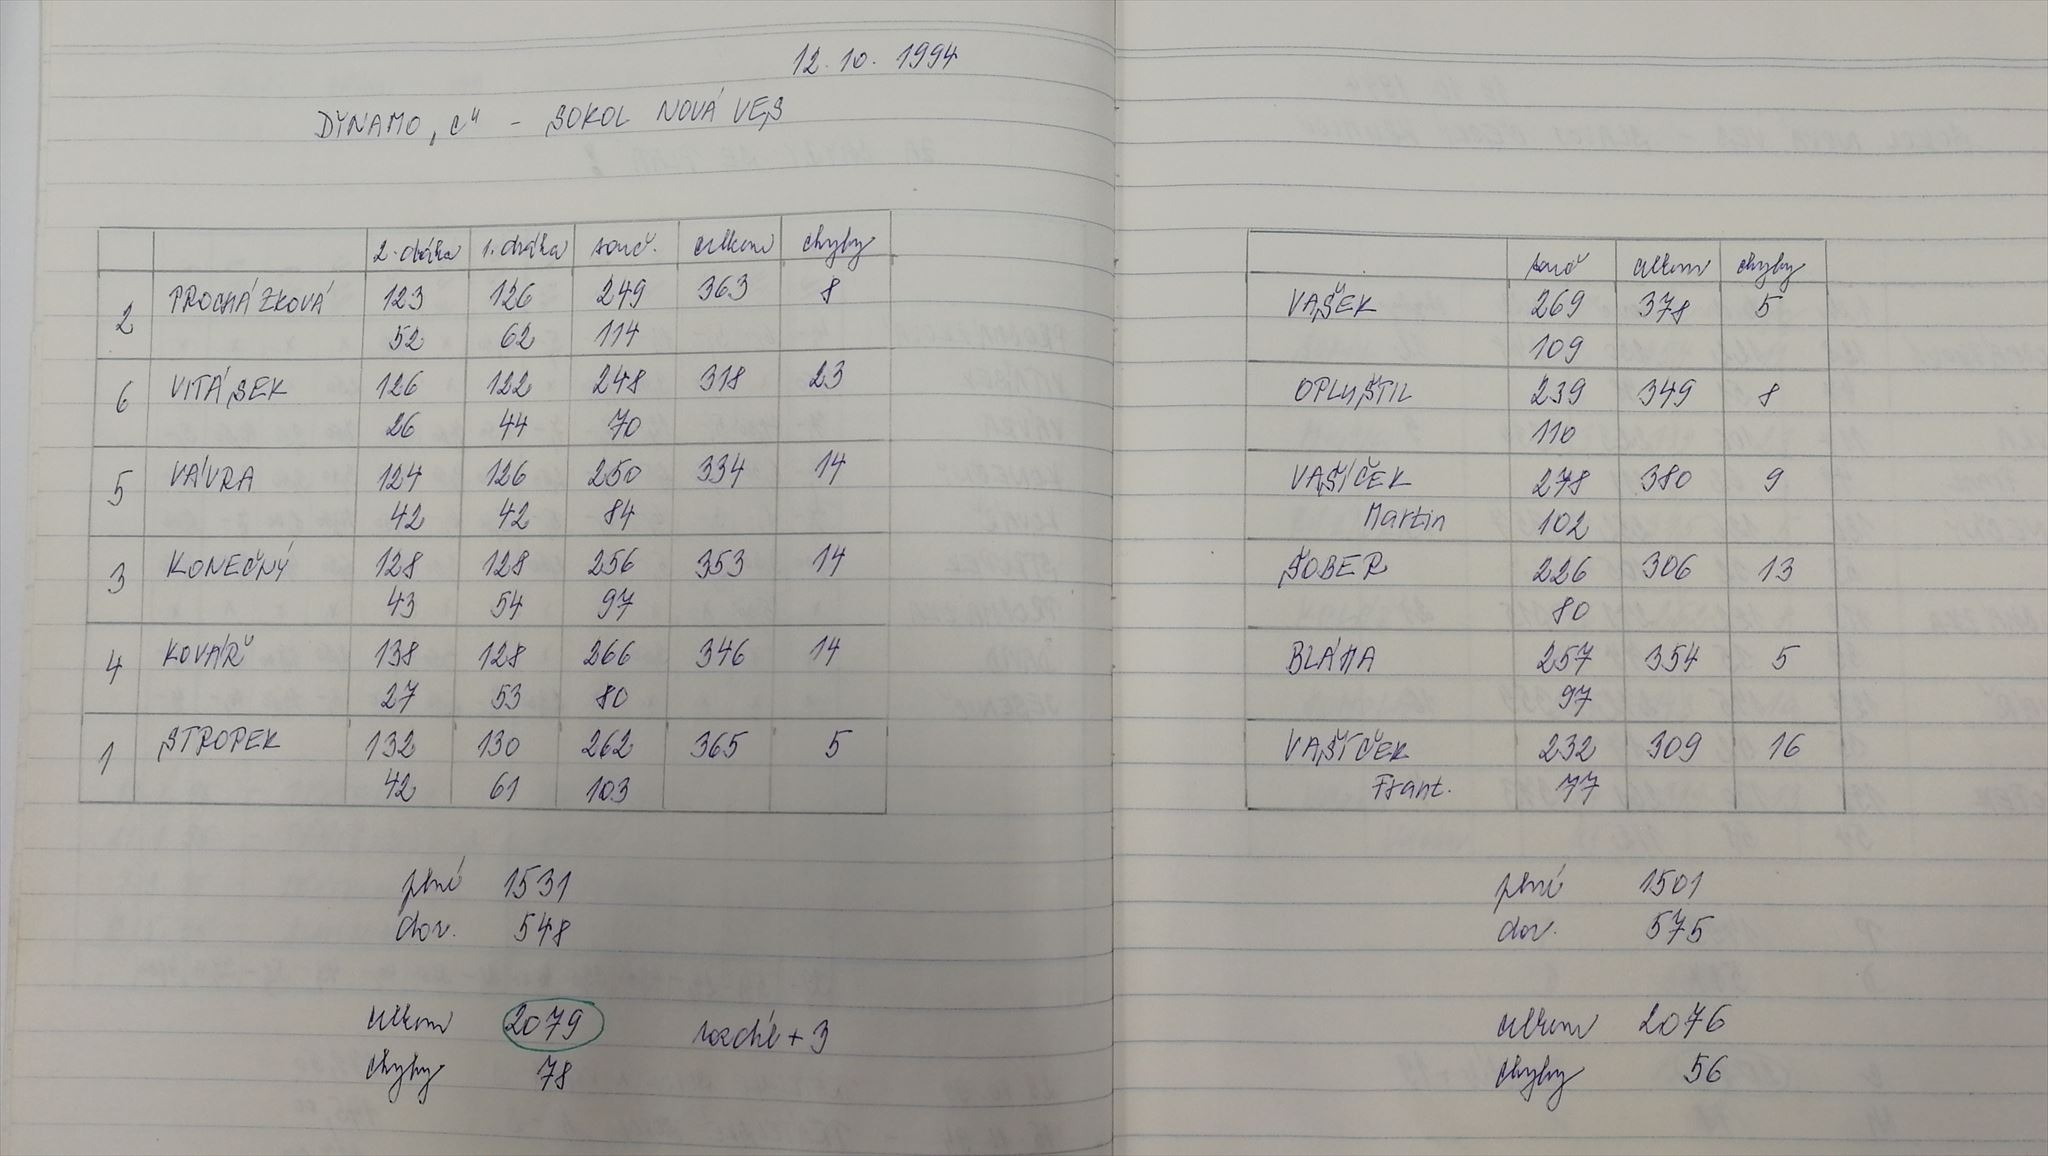 12. 10. 1994
DYNAMO „C" - SOKOL NOVÁ VES
2. dráha 1. dráha souč. celkem chyby
2 PROCHÁZKOVÁ 123 126 249 363 8
52 62 114
6 VITÁSEK 126 122 248 318 23
26 44 70
5 VÁVRA 124 126 250 334 14
42 42 84
3 KONEČNÝ 128 128 256 353 14
43 54 97
4 KOVÁŘ 138 128 266 346 14
27 53 80
1 STROPEK 132 130 262 365 5
42 61 103
plné 1531
dor. 548
celkem 2079 rozdíl + 3
chyby 78
souč celkem chyby
VAŠEK 269 378 5
109
OPLUŠTIL 239 349 8
110
VAŠÍČEK 278 380 9
Martin 102
ŠOBER 226 306 13
80
BLÁHA 257 354 5
97
VAŠÍČEK 232 309 16
Frant. 77
plné 1501
dor. 575
celkem 2076
chyby 56